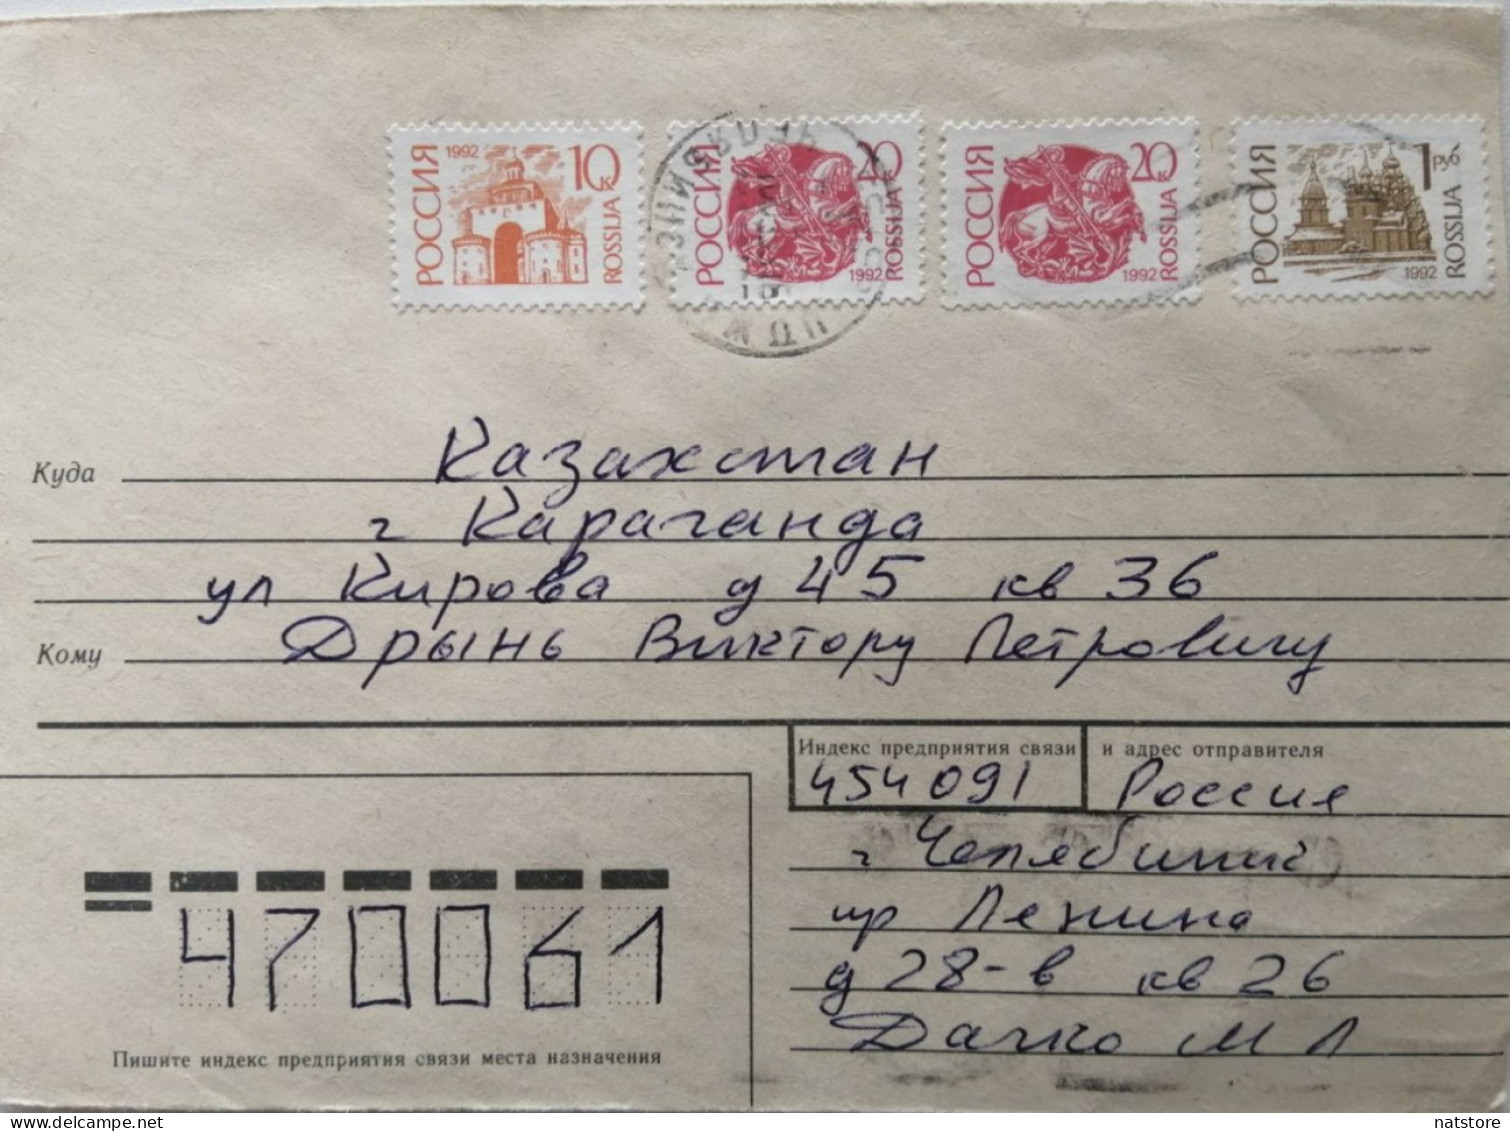 РОССИЯ 1992 10 к ROSSIJA
РОССИЯ 20 к 1992 ROSSIJA
РОССИЯ 20 к 1992 ROSSIJA
РОССИЯ 1 руб 1992 ROSSIJA
Куда Казахстан
г Караганда
ул Кирова д 45 кв 36
Кому Дрынь Виктору Петровичу
Индекс предприятия связи и адрес отправителя
454091 Россия
г Челябинск
пр Ленина
д 28-в кв 26
Дачко М Л
470061
Пишите индекс предприятия связи места назначения
natstore